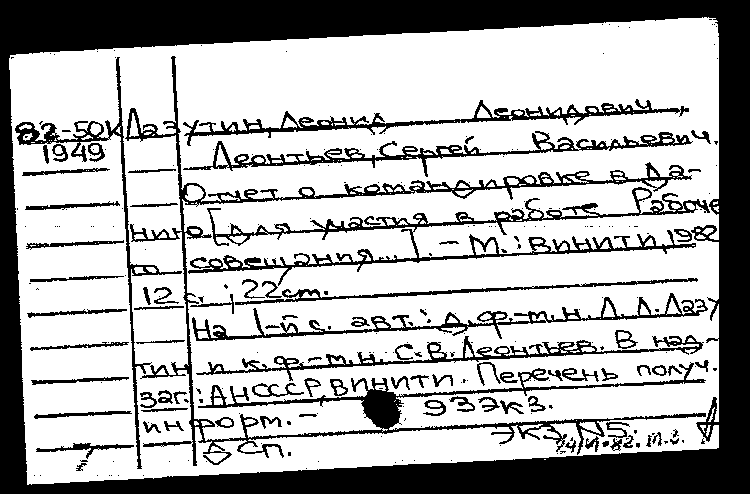 82-50к Лазутин, Леонид Леонидович,
1949 Леонтьев, Сергей Васильевич.
Отчет о командировке в Да-
нию [для участия в работе Рабоче
го совещания...]. - М.: ВИНИТИ, 1982
12 с. ; 22 см.
На 1-й с. авт.: д. ф.-м. н. Л. Л. Лазу
тин и к. ф.-м. н. С. В. Леонтьев. В над-
заг.: АН СССР, ВИНИТИ. Перечень получ.
информ. - 93 экз.
ДСП. ЭКЗ. N5.